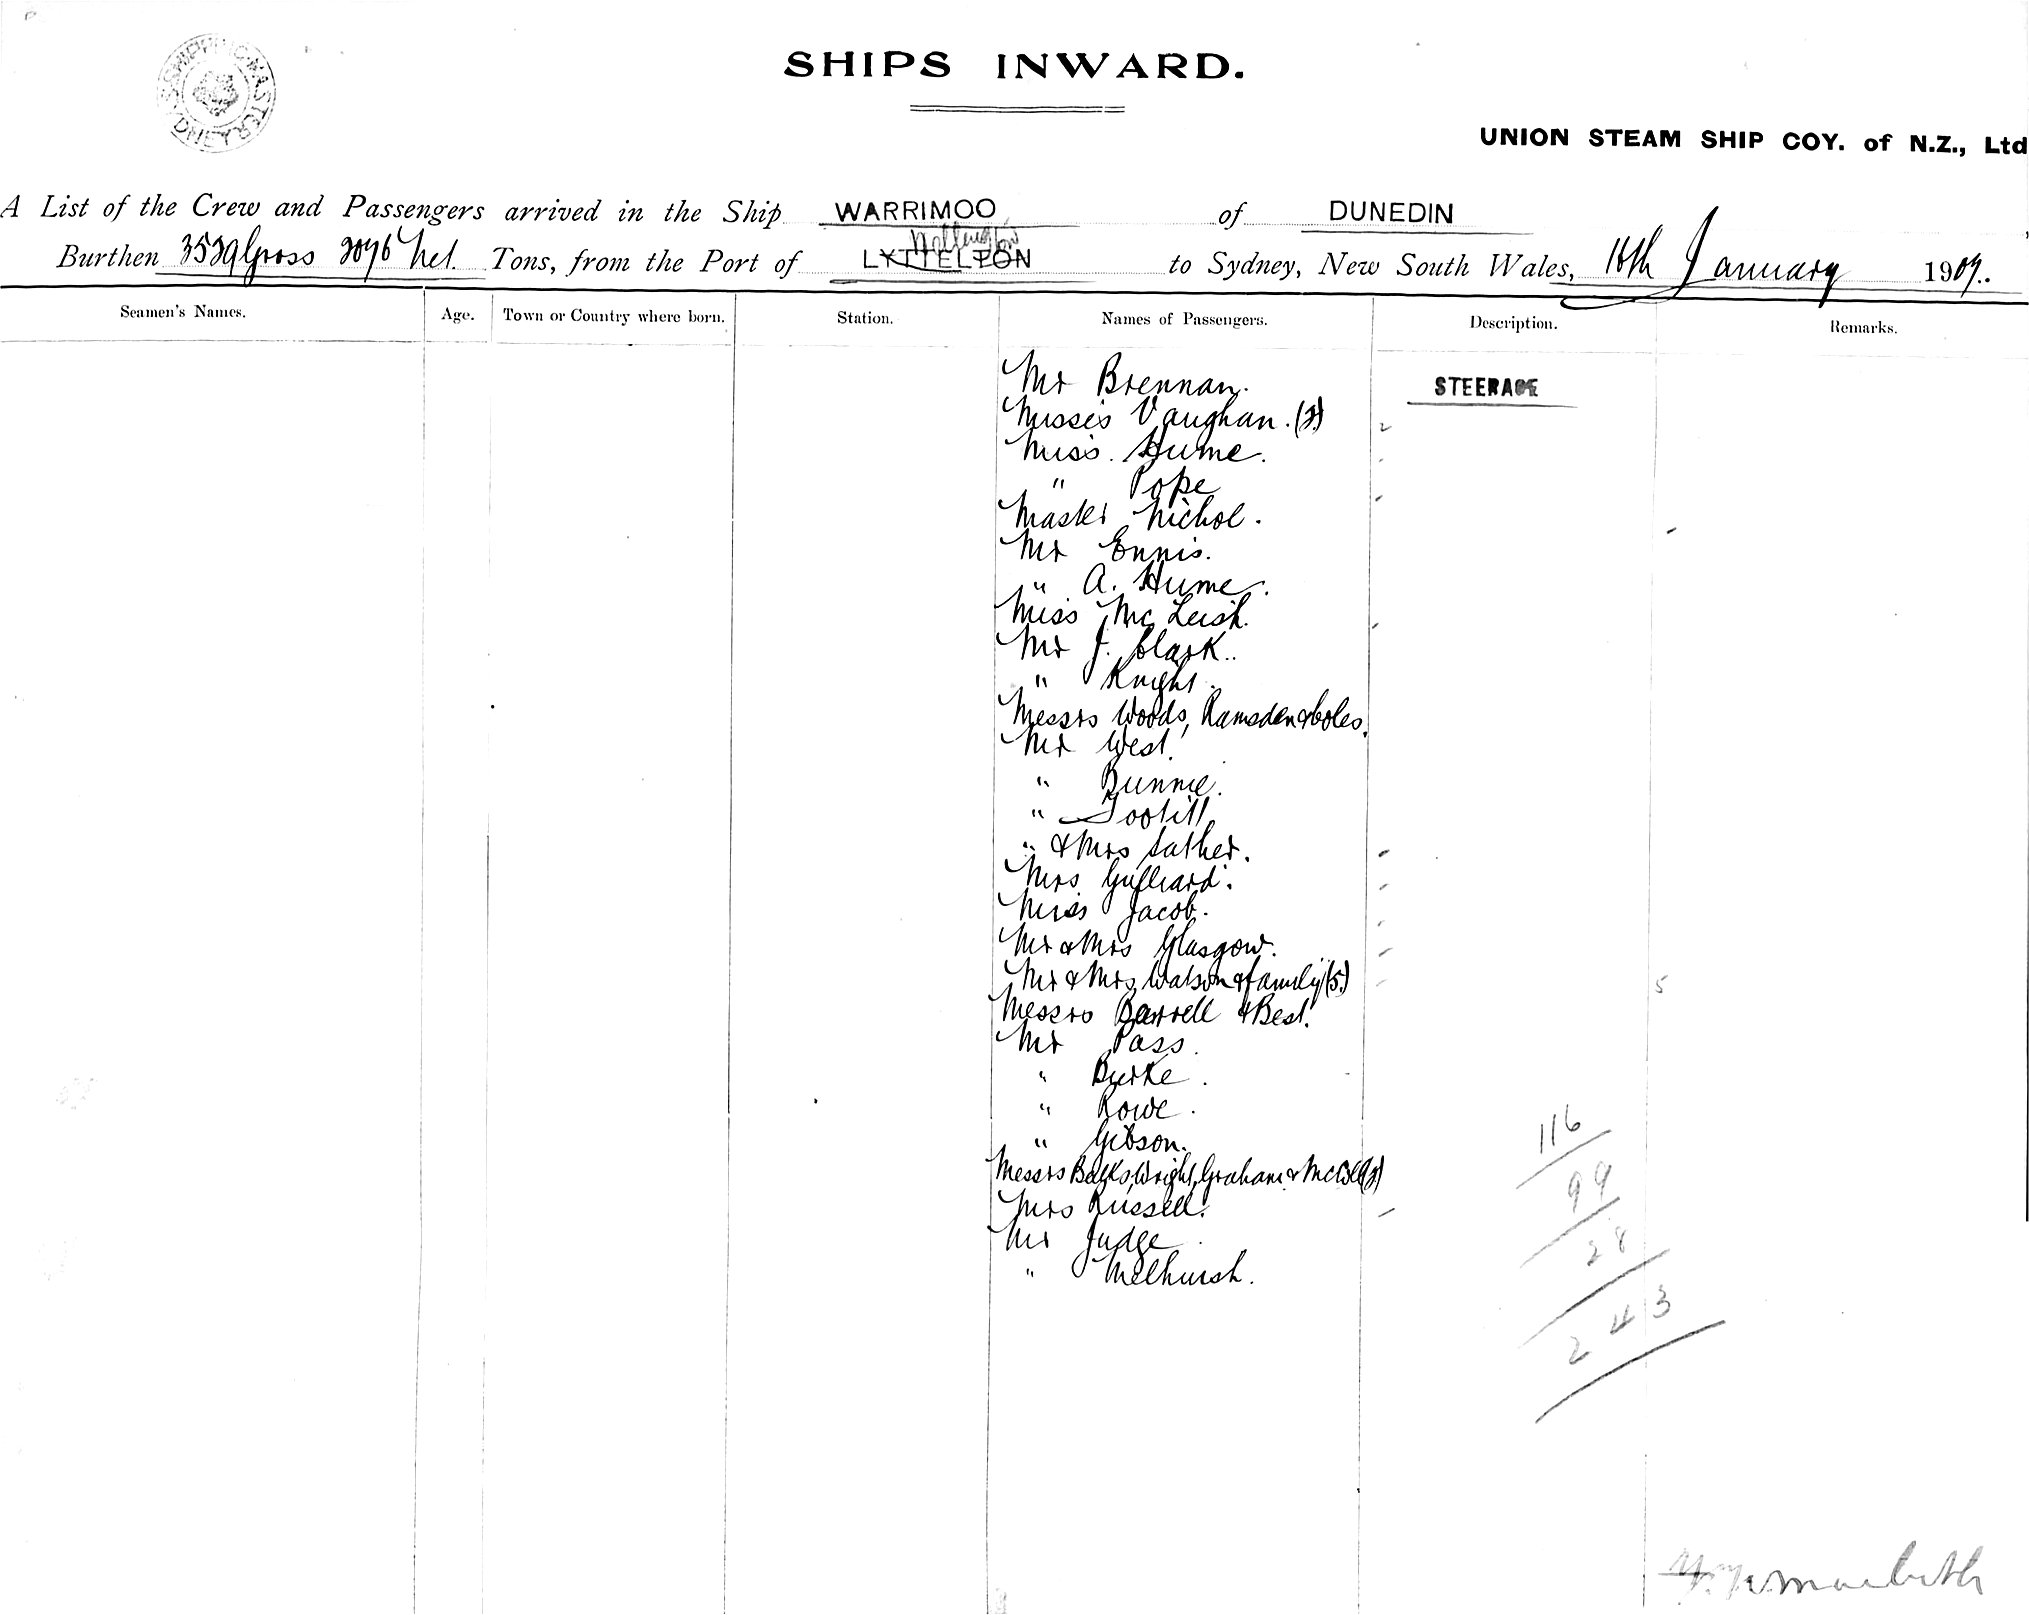 SHIPPING MASTER SYDNEY
SHIPS INWARD.
UNION STEAM SHIP COY. of N.Z., Ltd
A List of the Crew and Passengers arrived in the Ship WARRIMOO of DUNEDIN
Wellington
Burthen 3529 Gross 2076 Net. Tons, from the Port of LYTTELTON to Sydney, New South Wales, 16th January 1907.
Seamen's Names. Age. Town or Country where born. Station. Names of Passengers. Description. Remarks.
Mr Brennan. STEERAGE
Misses Vaughan. (2) 2
Miss. Hume.
" Pope
Master Nichol.
Mr Ennis.
" A. Hume.
Miss McLeish.
Mr J. Clark..
" Knight.
Messrs Woods, Ramsden & Coles.
Mr West.
" Bunnie.
" Tootill
" & Mrs Sather.
Mrs Gulliard.
Miss Jacob.
Mr & Mrs Glasgow.
Mr & Mrs Watson & family (5.) 5
Messrs Barrell & Best.
Mr Pass.
" Burke.
" Rowe.
" Gibson.
Messrs Wright, Graham &
Mrs Russell.
Mr Judge
" Melhuish.
116
99
28
243